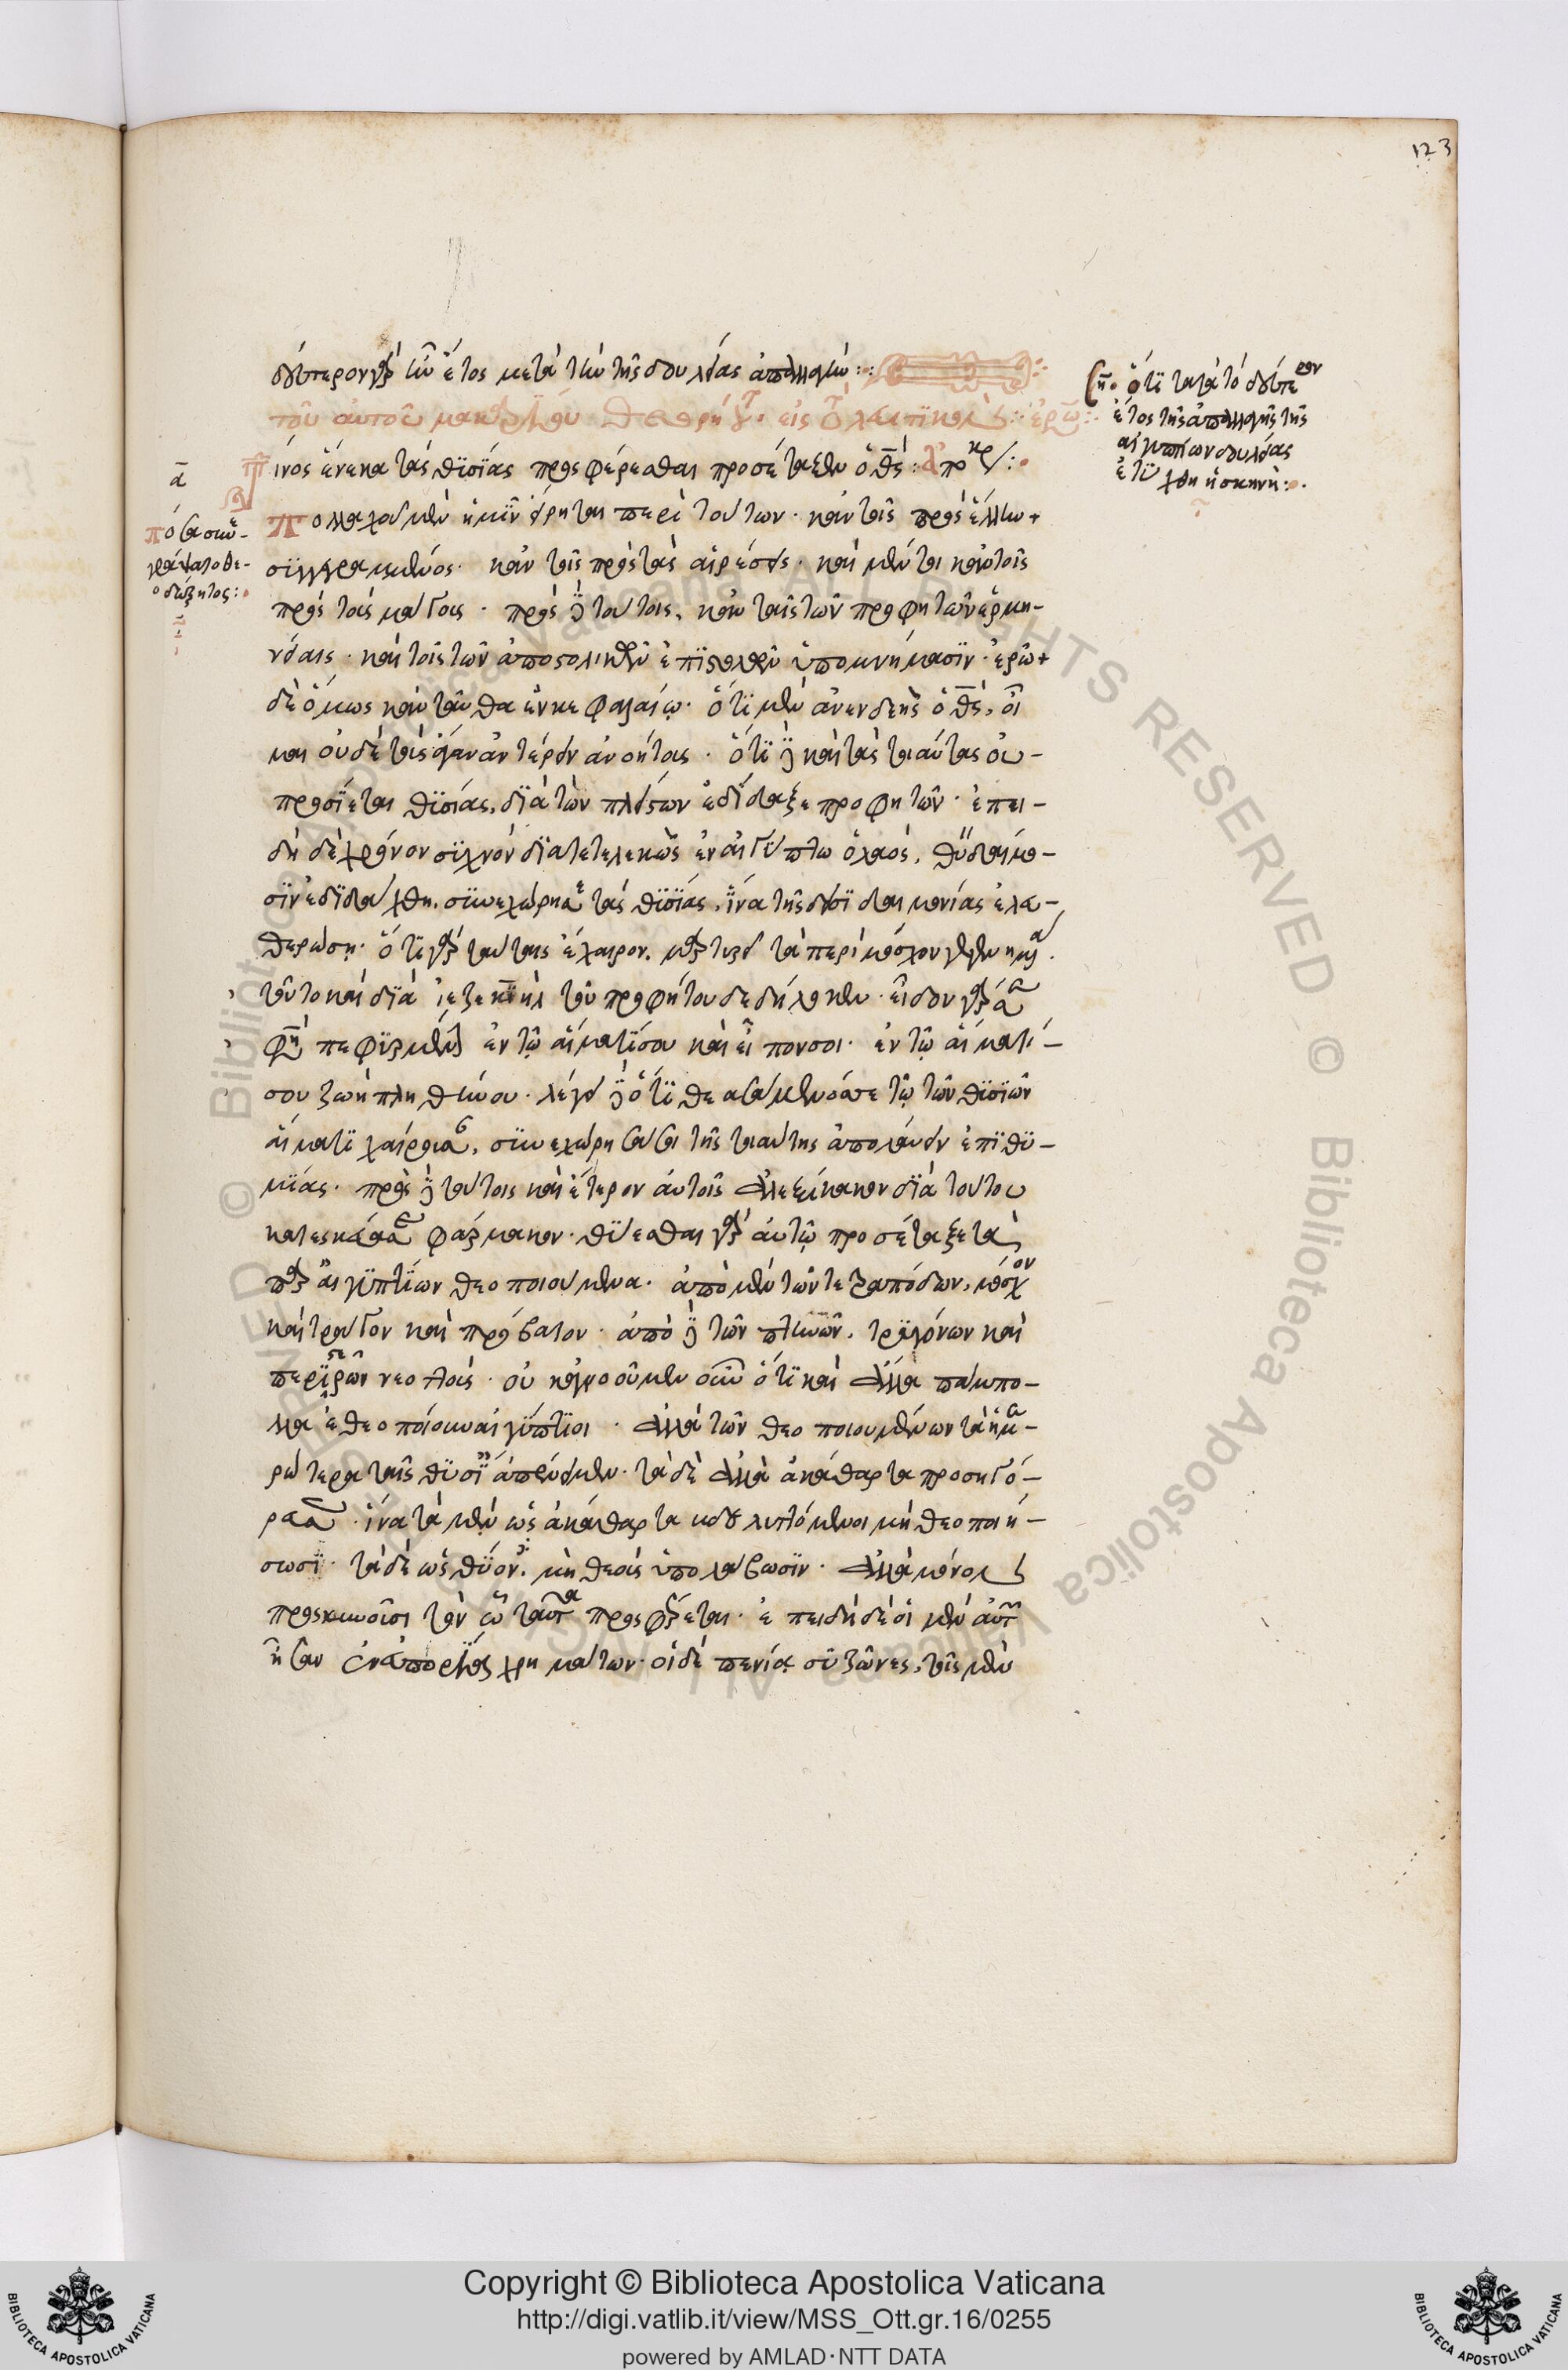 123
δεύτερον γὰρ ἦν ἔτος μετὰ τὴν τῆς δουλείας ἀπαλλαγήν:
τοῦ αὐτοῦ μακαρίου Θεοδωρήτου εἰς τὸ λευϊτικόν: ἐρώ:
Τίνος ἕνεκα τὰς θυσίας προσφέρεσθαι προσέταξεν ὁ θς: Ἀποκρ:
Πολλαχοῦ μὲν ἡμῖν εἴρηται περὶ τούτων· κἀν τοῖς πρὸς ἕλλην
συγγεγραμμένοις· κἀν τοῖς πρὸς τὰς αἱρέσεις· καὶ μέντοι κἀν τοῖς
πρὸς τοὺς μάγους· πρὸς δὲ τούτοις, κἀν ταῖς τῶν προφητῶν ἑρμη-
νείαις· καὶ τοῖς τῶν ἀποστολικῶν ἐπιστολῶν ὑπομνήμασιν· ἐρῶ
δὲ ὅμως κἀνταῦθα ἐν κεφαλαίῳ· ὅτι μὲν ἀνενδεὴς ὁ θς, οἶ
μαι οὐδὲ τοὺς ἄγαν ἀντερεῖν ἀνοήτους· ὅτι δὲ καὶ τὰς τοιαύτας οὐ-
προσίεται θυσίας, διὰ τῶν πλείστων ἐδίδαξε προφητῶν· ἐπει-
δὴ δὲ χρόνον συχνὸν διατετελεκὼς ἐν αἰγύπτω ὁ λαὸς, θύειν δαίμο-
σιν ἐδιδάχθη, συνεχώρησε τὰς θυσίας, ἵνα τῆς δεισιδαιμονίας ἐλευ-
θερώση· ὅτι γὰρ ταύταις ἔχαιρον, μαρτυρεῖ τὰ περὶ μόσχον γεγενημένα.
τοῦτο καὶ διὰ ἰεζεκιὴλ τοῦ προφήτου δεδήλωκεν· εἶδον γάρ σε
φησὶ πεφυρμένην ἐν τῷ αἵματί σου καὶ εἶπον σοι· ἐν τῷ αἵματί
σου ζωὴ πληθύνου· λέγει δὲ ὅτι θεασάμενός σε τῷ τῶν θυσιῶν
αἵματι χαίρουσαν, συνεχώρησά σοι τῆς τοιαύτης ἀπολαύειν ἐπιθυ-
μίας· πρὸς δὲ τούτοις καὶ ἕτερον αὐτοῖς ἀλεξίκακον διὰ τούτου
κατεσκεύασε φάρμακον· θύεσθαι γὰρ αὐτῷ προσέταξε τὰ
παρ' αἰγυπτίων θεοποιούμενα· ἀπὸ μὲν τῶν τετραπόδων, μόσχον
καὶ τράγον καὶ πρόβατον· ἀπὸ δὲ τῶν πτηνῶν, τρυγόνων καὶ
περιστερῶν νεοττοὺς· οὐκ ἀγνοοῦμεν οὖν ὅτι καὶ ἄλλα πάμπο-
λλα ἐθεοποίουν αἰγύπτιοι· ἀλλὰ τῶν θεοποιουμένων τὰ ἡμε-
ρώτερα ταῖς θυσίαις ἀπένειμεν· τὰ δὲ ἄλλα ἀκάθαρτα προσηγό-
ρευσε· ἵνα τὰ μὲν ὡς ἀκάθαρτα μυσαττόμενοι μὴ θεοποιή-
σωσι· τὰ δὲ ὡς θυόμενα μὴ θεοὺς ὑπολάβωσιν· ἀλλὰ μόνον
προσκυνῶσι τὸν ᾧ ταῦτα προσφέρεται· ἐπειδὴ δὲ οἱ μὲν αὐτῶν
ἦσαν ἐν εὐπορίᾳ χρημάτων· οἱ δὲ πενίᾳ συζῶντες, τοῖς μὲν
ὅτι κατὰ τὸ δεύτερον
ἔτος τῆς ἀπαλλαγῆς τῆς
αἰγυπτίων δουλείας
ἐτύχθη ἡ σκηνή:
α
πόσα συνε-
γράψατο θε-
οδώρητος:
Copyright © Biblioteca Apostolica Vaticana
http://digi.vatlib.it/view/MSS_Ott.gr.16/0255
powered by AMLAD·NTT DATA
BIBLIOTECA APOSTOLICA VATICANA
BIBLIOTECA APOSTOLICA VATICANA